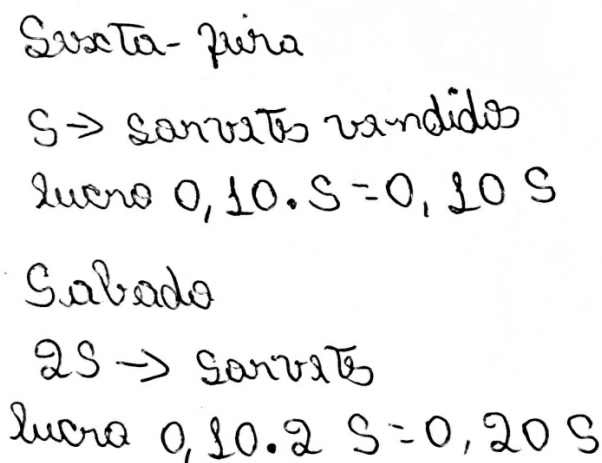 Sexta-feira
S → sorvetes vendidos
lucro 0,10.S=0,10 S
Sabado
2S → sorvetes
lucro 0,10.2 S=0,20 S